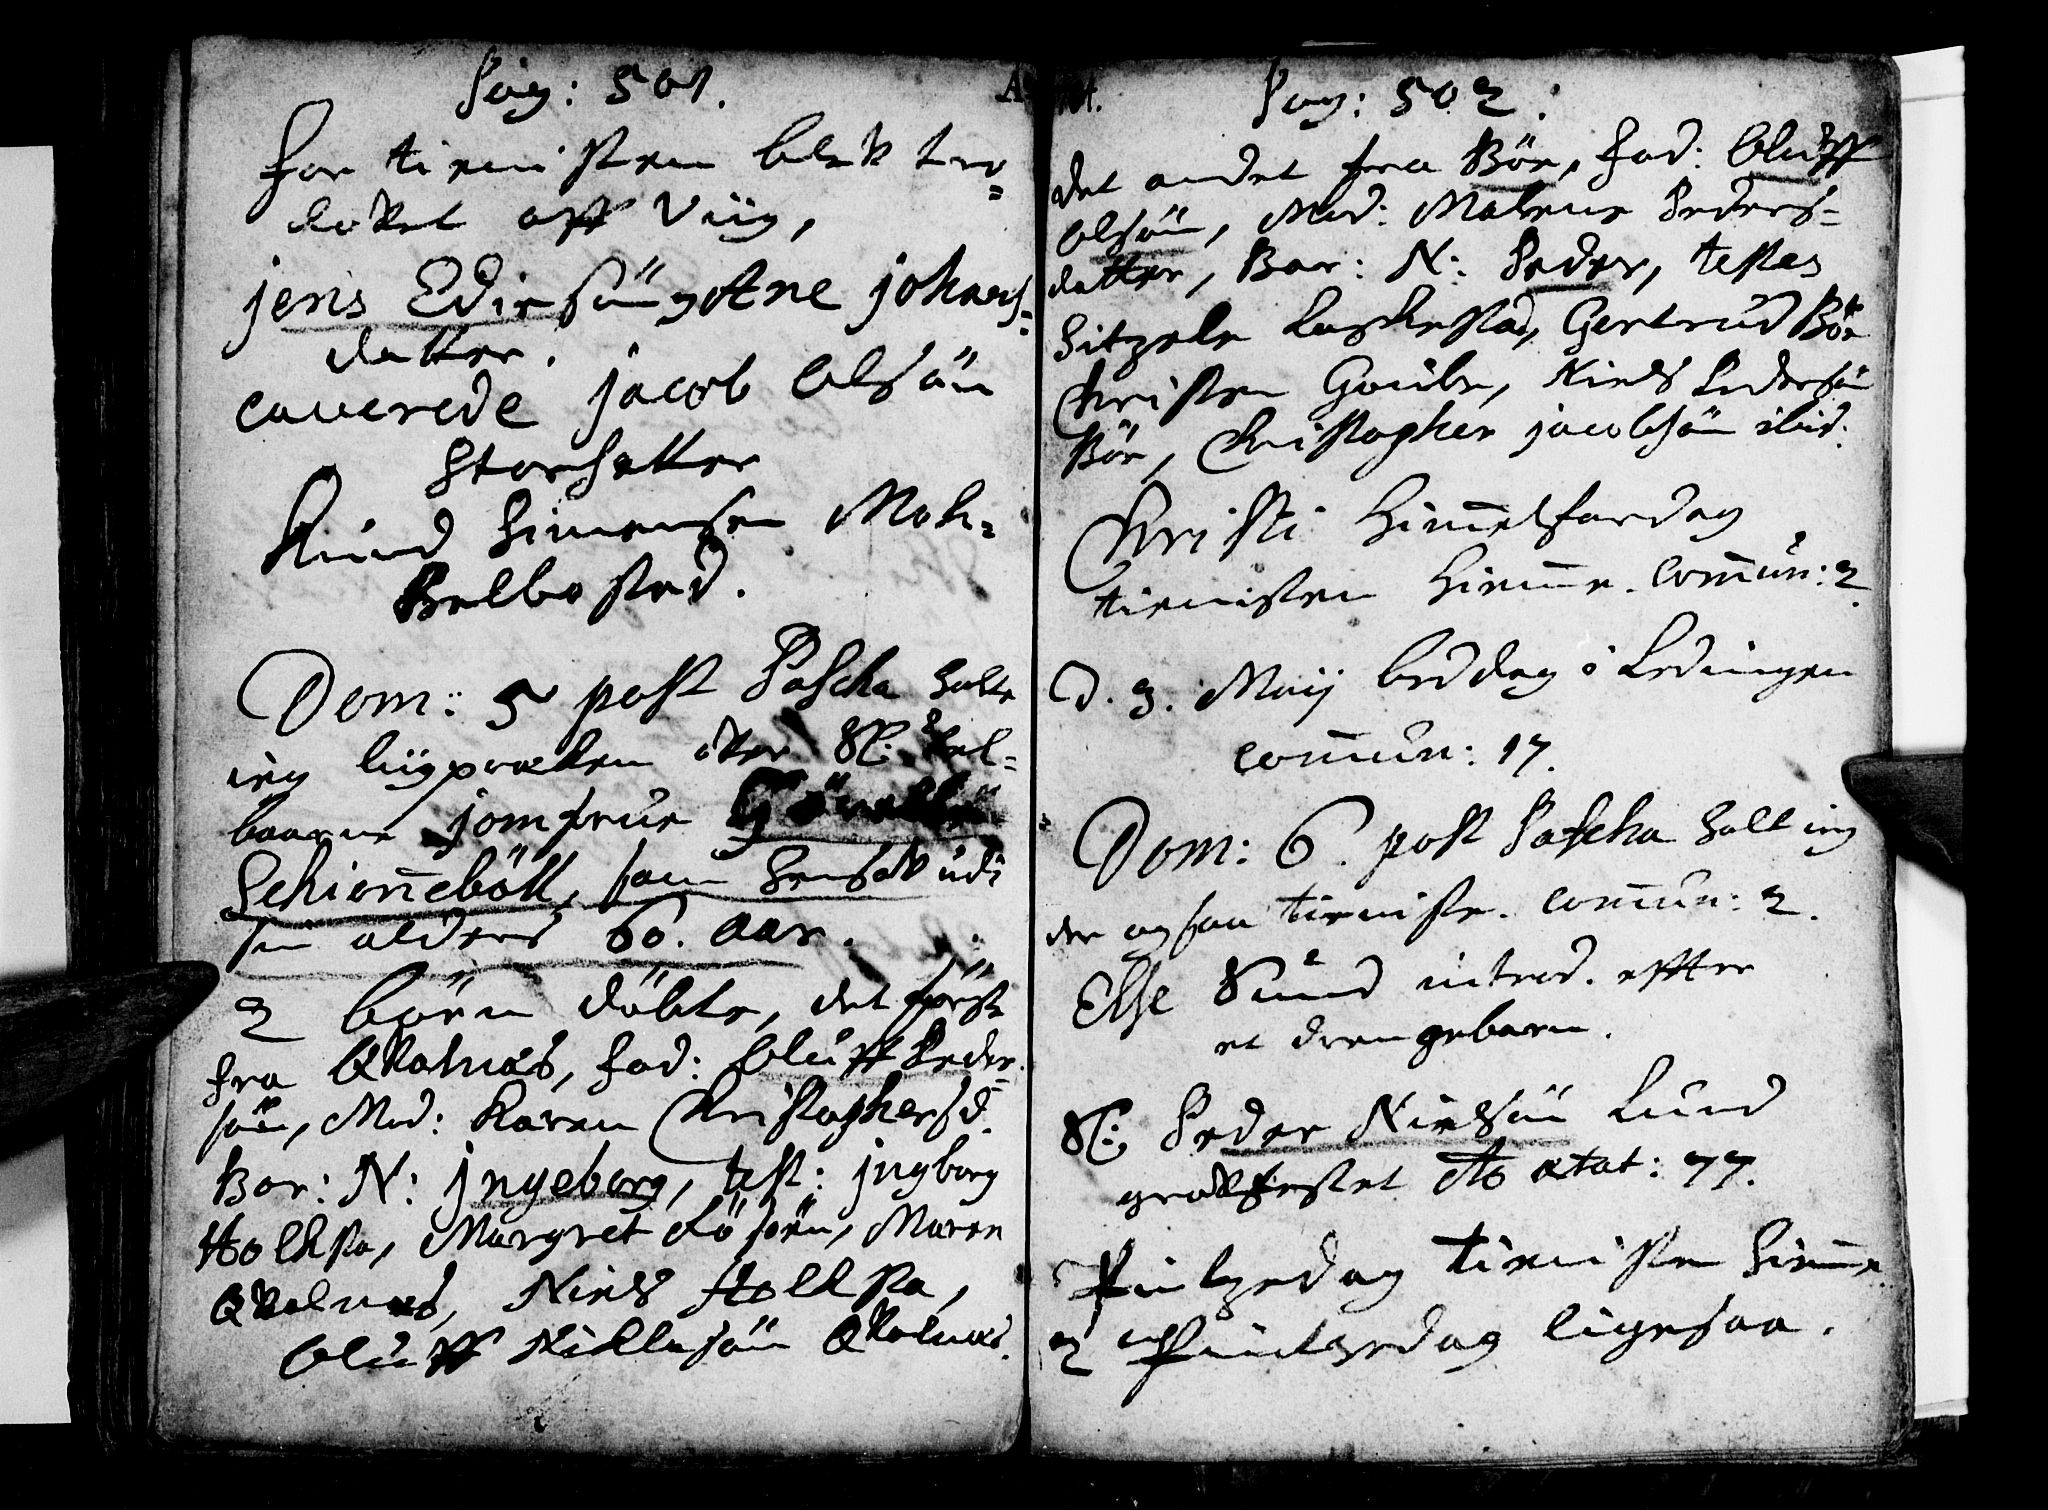 Pag: 501.
for tienisten blef tro=
lovet aff Viig,
jens Edissön, Ane johans=
datter.
caverede jacob Olsön
Storsetter
Knud Simensen Moh=
Belbostad.
Dom: 5 post Pascha holte
ieg liigprædken over Sl: Vel=
baarne jomfrue
Schionnebøll, som hensov udi
sin alders 60. aar.
2 börn döbte, det förste
fra Qvalnæs, fad: Oluff Peder
sön, Mod: Karen Christophersd.
Bar: N: jngeborg, test: jngborg
Holksta, Margret, Maren
Qvalnæs, Niels Holksta,
Oluff Nillesön Qvalnæs.
Pag: 502.
det andet fra Böe, fad: Oluff
Olsön, Mod: Malene Peders=
datter, Bar: N: Peder, testes
Sitzele Laschestad, Gertrud Böe
Christen Goube, Niels Pedersön
Böe, Christopher jacobsön ibid:
Christi Himmelfardag
tienisten hiemme. Commun: 2.
D. 3. Maij beddag i Lødingen
commun: 17.
Dom: 6. post Pascha holt ieg
der ogsaa tieniste. commun: 2.
Else Sund introd. effter
et drengebarn.
Sl: Peder Nielsön Lund
gravfestet Ao ætat: 77.
Pintzedag tienisten hiemme
2 Pintzedag ligesaa.